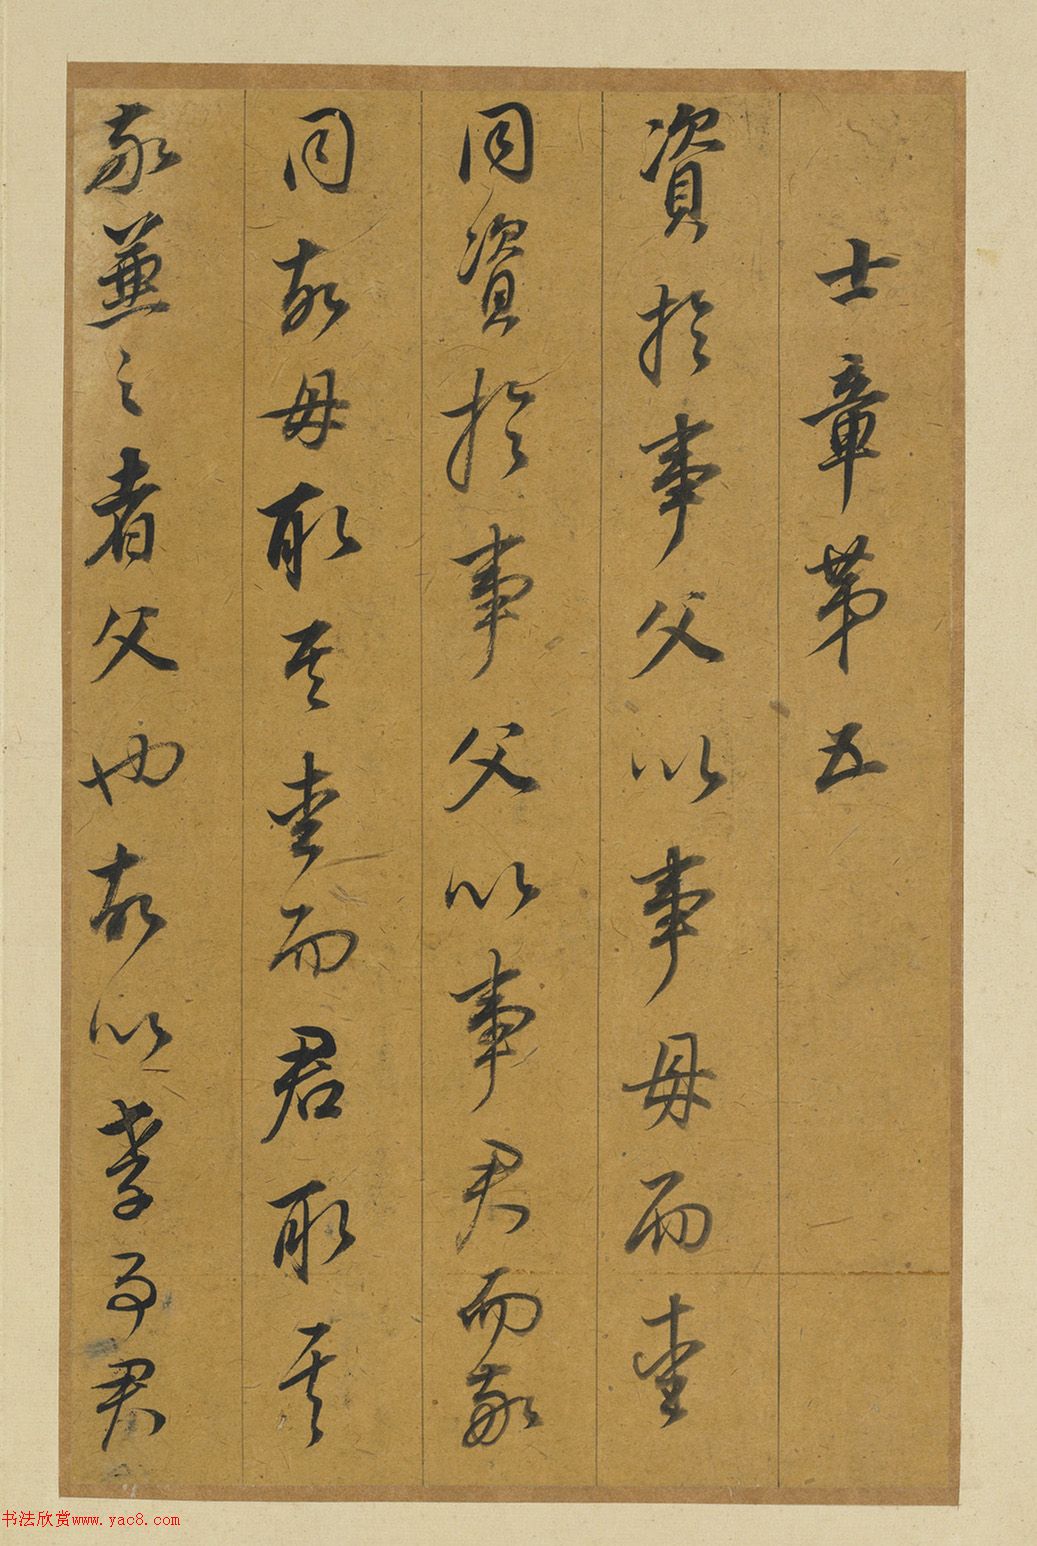 士章第五
資於事父以事母而愛
同資於事父以事君而敬
同故母取其愛而君取其
敬兼之者父也故以孝事君
书法欣赏www.yac8.com